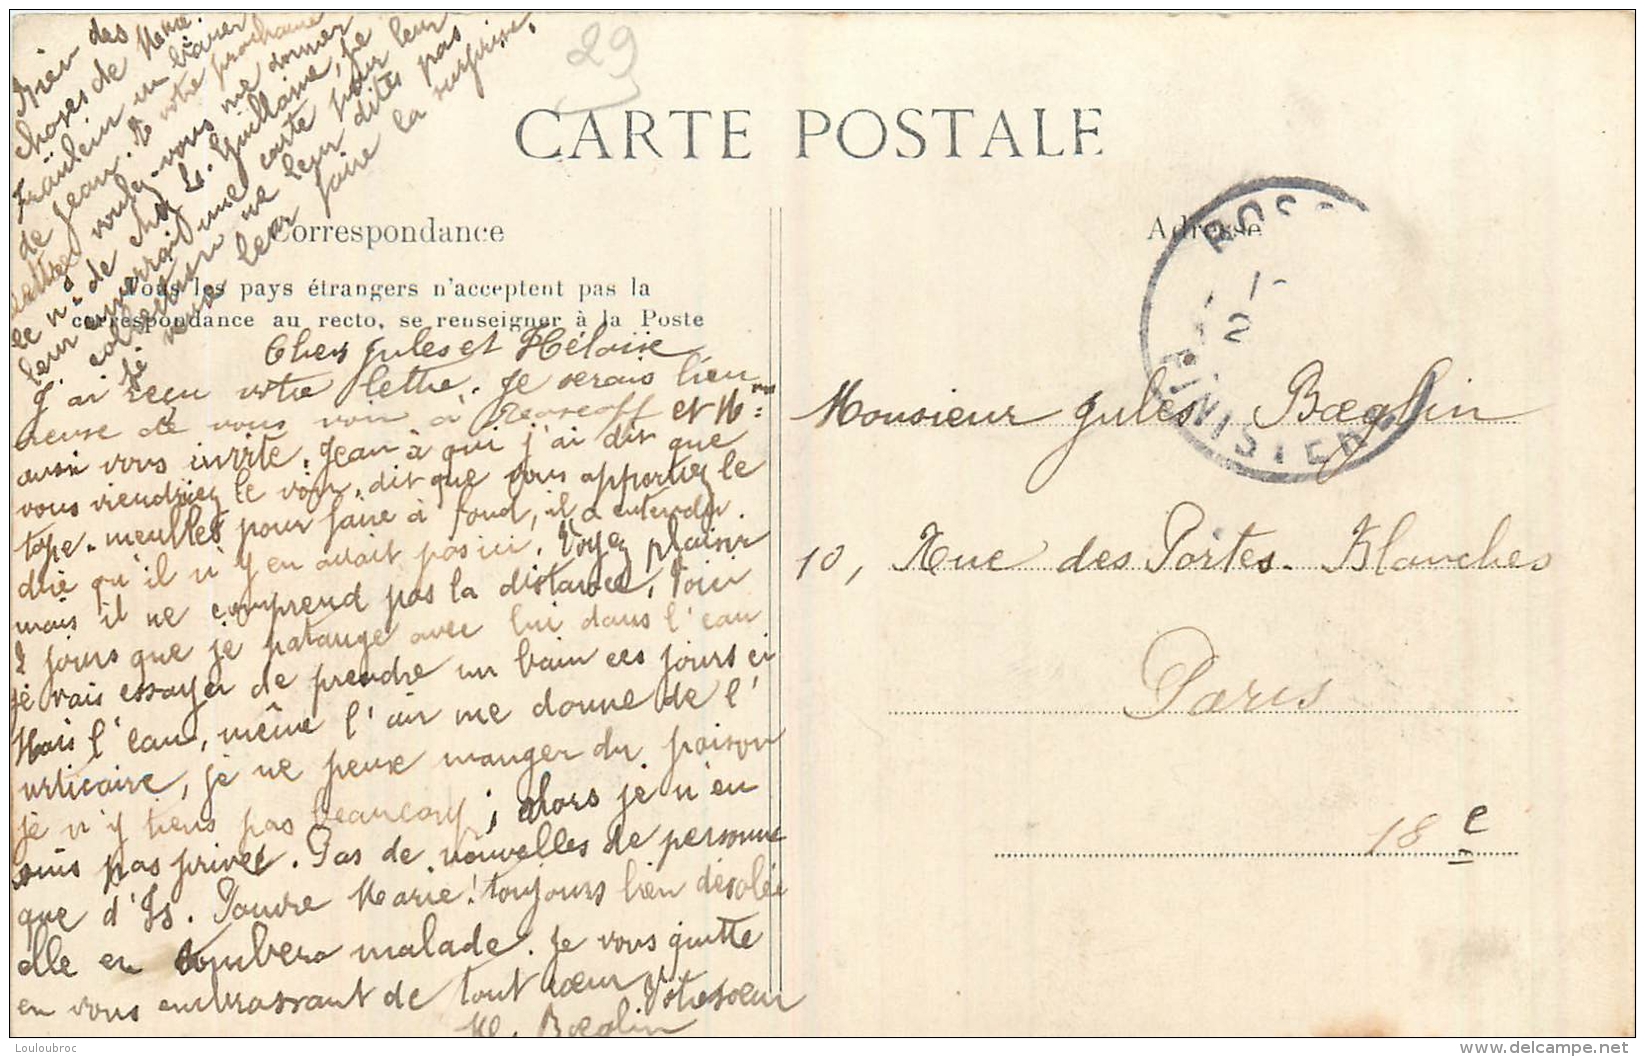 29
CARTE POSTALE
Correspondance
Tous les pays étrangers n'acceptent pas la
correspondance au recto, se renseigner à la Poste
Adresse
ROSC
FINISTERE
Chers Jules et Héloïse
J'ai reçu votre lettre. Je serais heu
reuse de vous voir à Roscoff et Mme
aussi vous invite. Jean à qui j'ai dit que
vous viendriez le voir, dit que vous apportiez le
tape-meulles pour faire à fond, il a entendu
dire qu'il n'y en avait pas ici. Voyez plaisir
mais il ne comprend pas la distance. Voici
2 jours que je patauge avec lui dans l'eau
je vais essayer de prendre un bain ces jours ci
Mais l'eau, même l'air me donne de l'
urticaire, je ne peux manger du poison
je n'y tiens pas beaucoup; alors je n'en
suis pas privée. Pas de nouvelles de personne
que d'Is. Pauvre Marie! toujours bien désolée
elle en tombera malade. Je vous quitte
en vous embrassant de tout cœur Votre sœur
M. Bœglin
Bien des
choses de Mme.
Fräulein un baiser
de Jean. A votre prochaine
lettre voulez-vous me donner
le n° de chez L. Guillaume, je
leur enverrai une carte pour leur
collection ne leur dites pas
je veux leur faire la surprise.
Monsieur Jules Bœglin
10, Rue des Portes-Blanches
Paris
18e
Louloubroc
delcampe.net